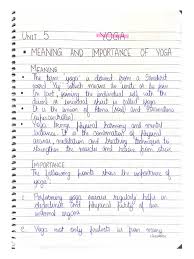 Unit 5
YOGA
• MEANING AND IMPORTANCE OF YOGA
MEANING
• The term 'yoga' is derived from a Sanskrit
word 'Yuj' which means to unite or to join
• In fact, joining the individual self with the
divine or universal spirit is called yoga.
• It is the union of Atma (soul) and Paramatma
• Yoga brings physical harmony and mental
balance. It is the combination of physical
asanas, meditation and breathing techniques to
strengthen the muscles and relieve from stress
IMPORTANCE
The following points show the importance of
yoga:
1. Performing yoga asanas regularly helps in
and physical purity of our
internal organs
2. Yoga not only protects us from many